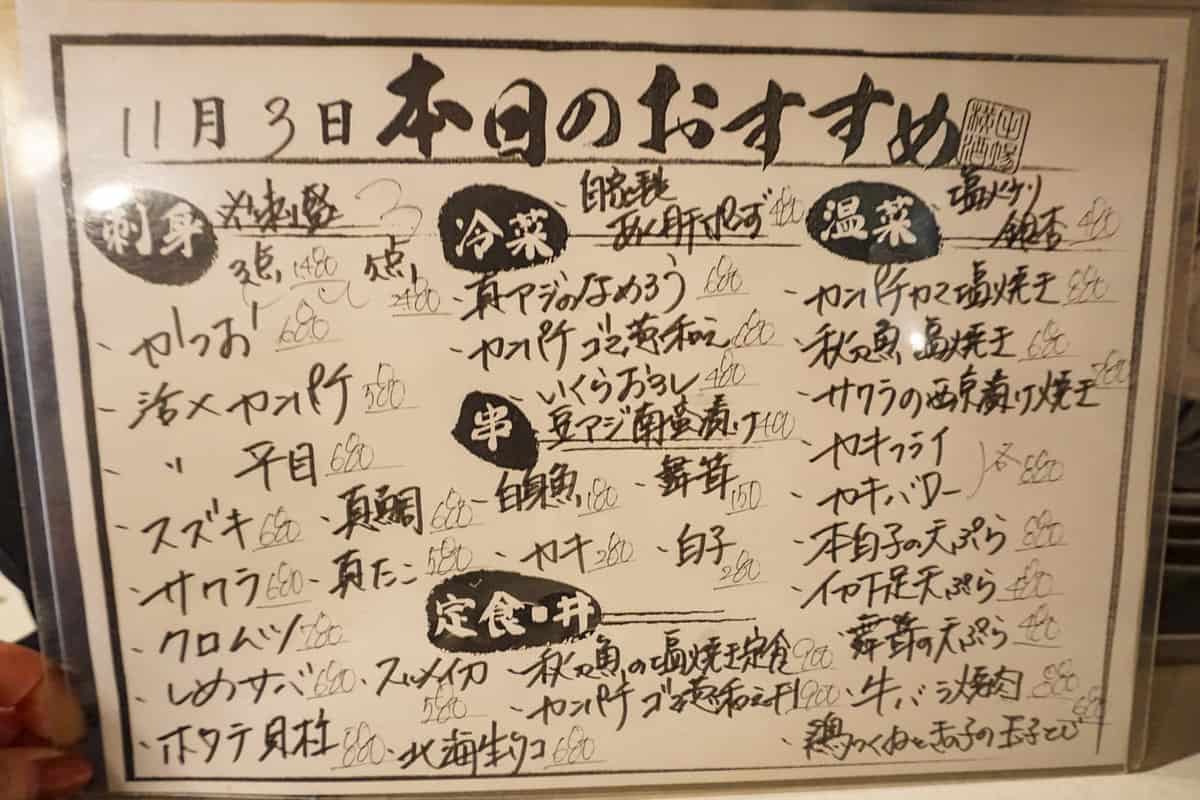 11月3日 本日のおすすめ
刺身
3点 1480 5点 2480
・かつお 680
・活〆カンパチ 580
・〃 平目 680
・スズキ 680 ・真鯛 680
・サワラ 680 ・真たこ 580
・クロムツ 780
・しめサバ 680 ・スルメイカ 580
・ホタテ貝柱 880 ・北海生タコ 680
冷菜
・自家製
あん肝ポン酢 480
・真アジのなめろう 680
・カンパチゴマ和え 680
・いくらおろし 480
・豆アジ南蛮漬け 480
串
・白身魚 180 ・舞茸 150
・カキ 280 ・白子 280
定食・丼
・秋刀魚の塩焼き定食 900
・カンパチゴマ和え丼 900
温菜
・塩イリ
銀杏 480
・カンパチカマ塩焼き 880
・秋刀魚塩焼き 680
・サワラの西京漬け焼き 780
・カキフライ
・カキバター 各 880
・本白子の天ぷら 880
・イカ下足天ぷら 480
・舞茸の天ぷら 480
・牛バラ焼肉 880
・鶏つくねときのこの玉子とじ 680